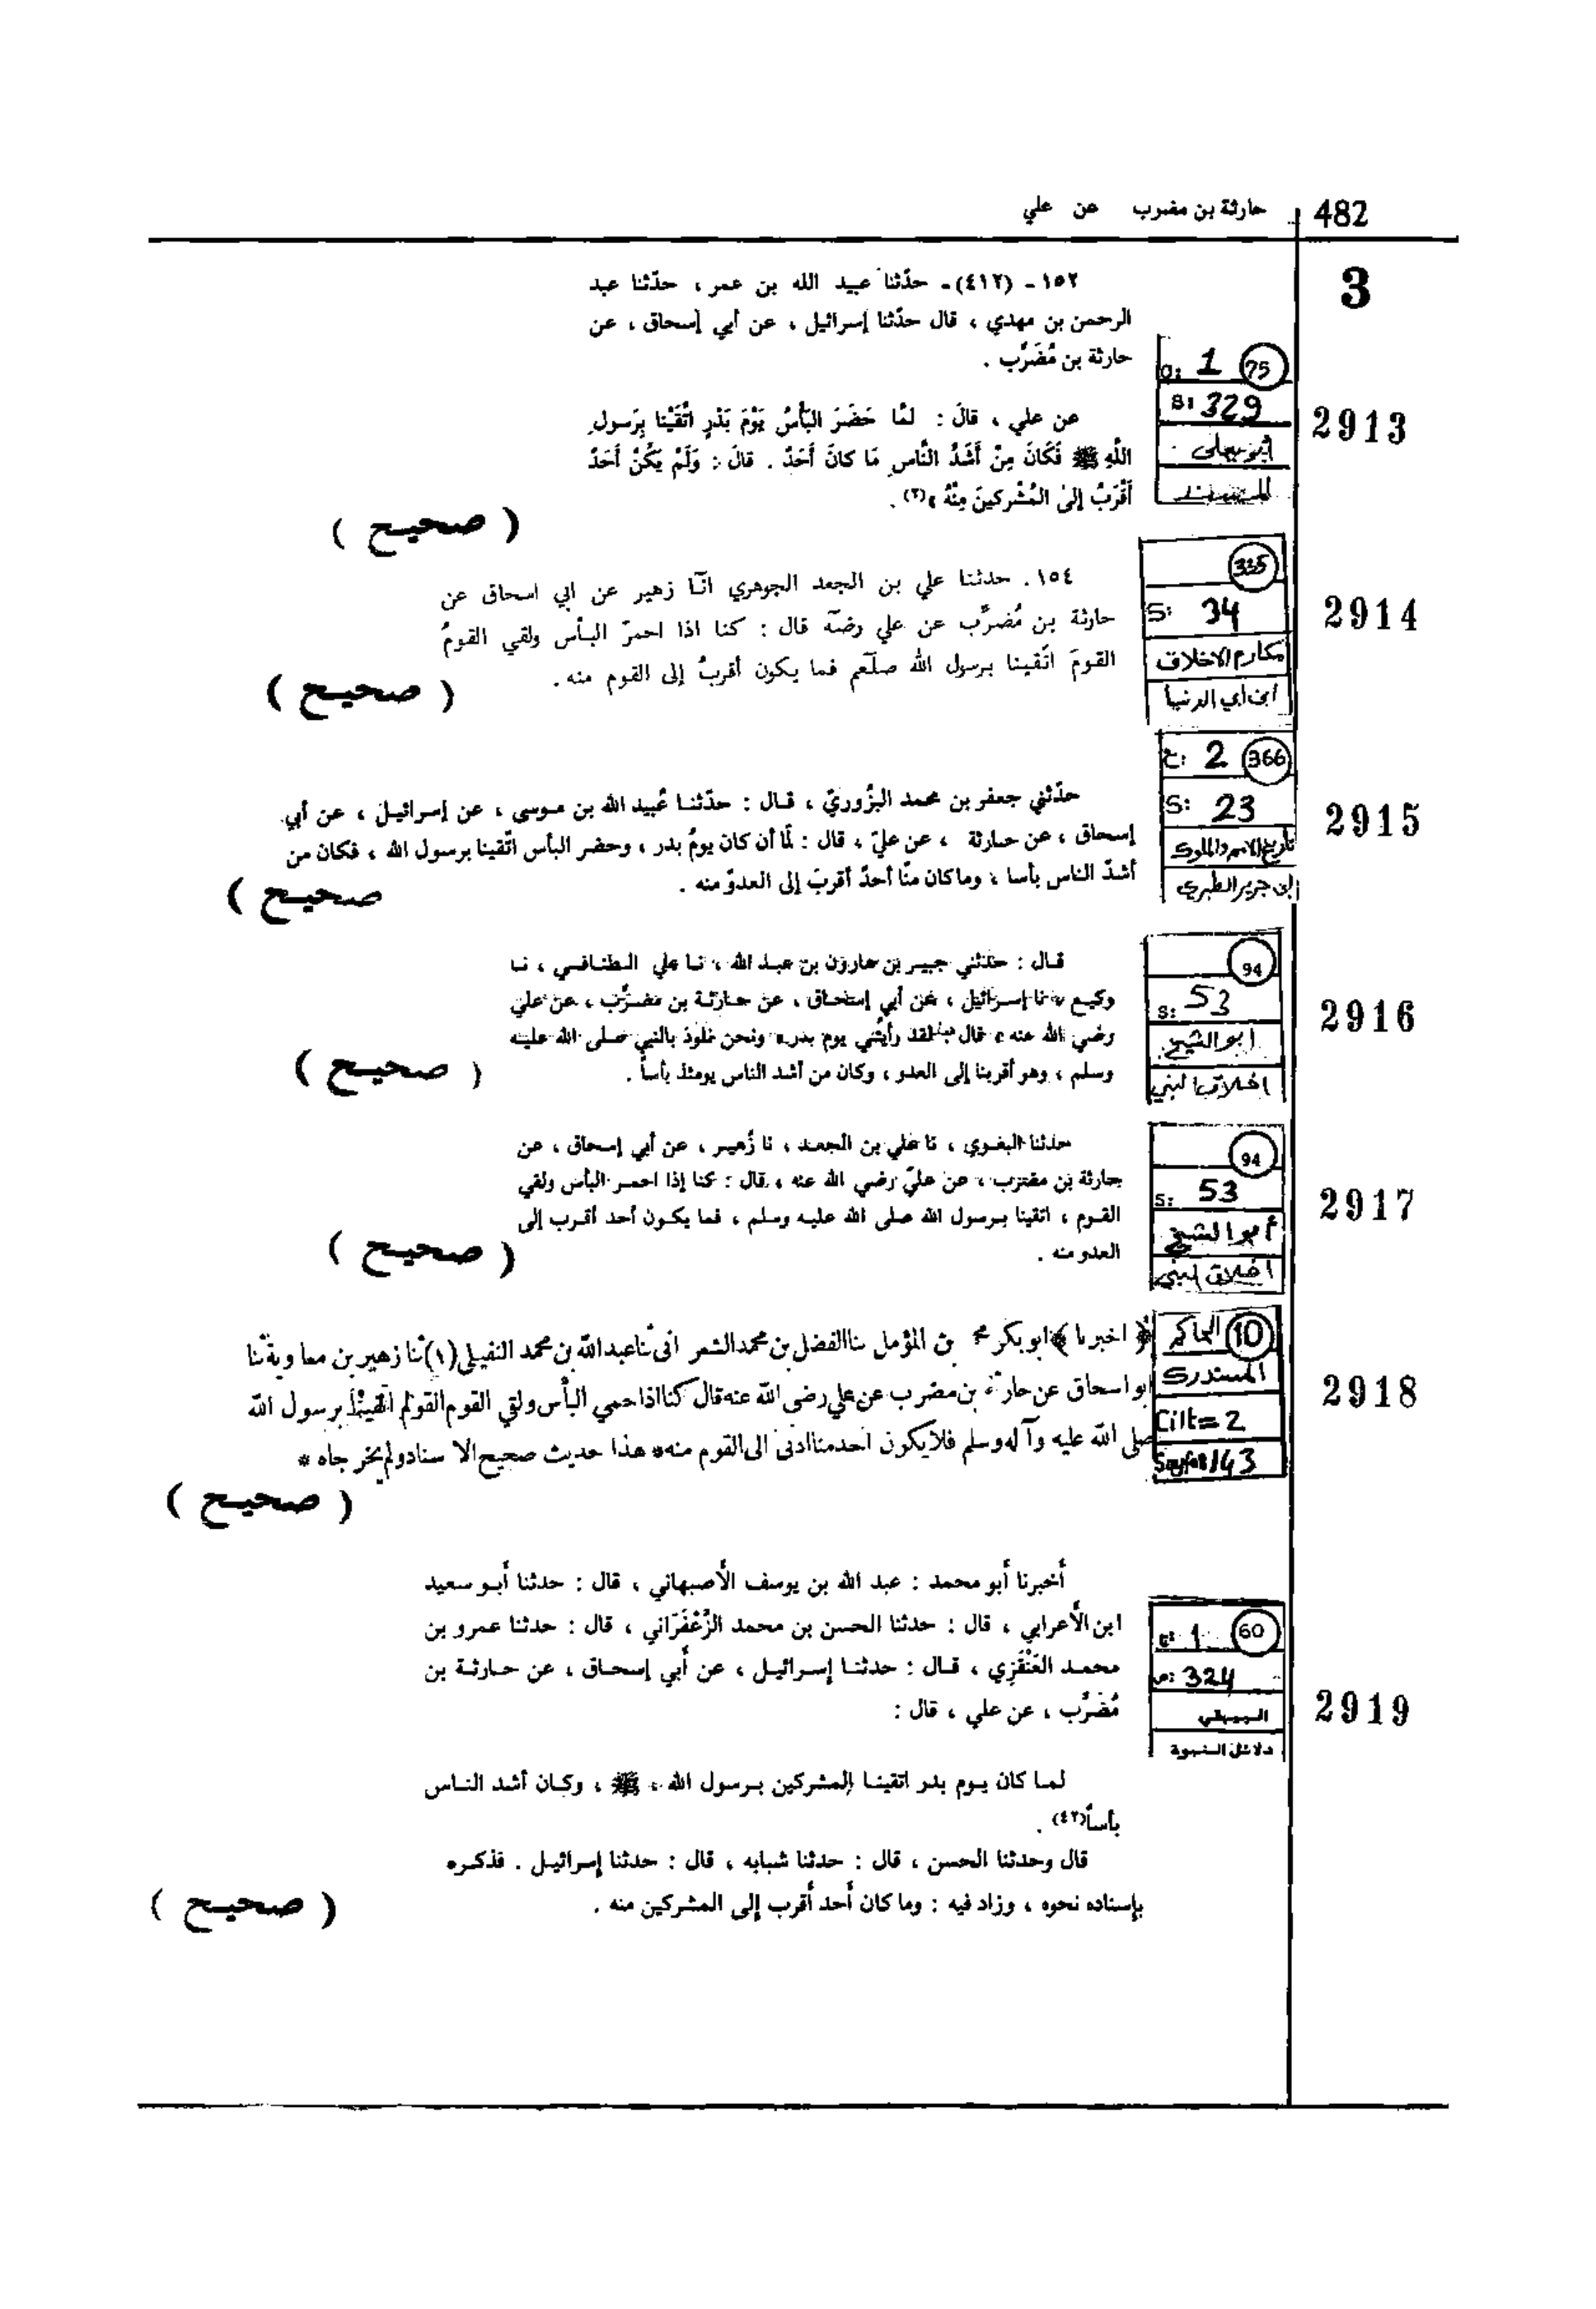 482 حارثة بن مضرب عن علي
3
١٥٢ - (٤١٢) - حدّثنا عبيد الله بن عمر ، حدّثنا عبد
الرحمن بن مهدي ، قال حدّثنا إسرائيل ، عن أبي إسحاق ، عن
حارثة بن مُضَرِّب .
1 75
S: 329
أبو يعلى
المسند
2913
عن علي ، قالَ : لَمَّا حَضَرَ البَأْسُ يَوْمَ بَدْرٍ اتَّقَيْنا بِرَسولِ
اللَّهِ ﷺ فَكَانَ مِنْ أَشَدِّ النَّاسِ مَا كانَ أَحَدٌ . قالَ : وَلَمْ يَكُنْ أَحَدٌ
أَقْرَبُ إلىٰ المُشْرِكينَ مِنْهُ »(٢) .
( صحيح )
335
S: 34
مكارم الاخلاق
ابن ابي الدنيا
2914
١٥٤. حدثنا علي بن الجعد الجوهري انّآ زهير عن ابي اسحاق عن
حارثة بن مُضرِّب عن علي رضّه قال : كنا اذا احمرّ البأس ولقي القومُ
القومَ اتّقينا برسول الله صلّعم فما يكون أقربُ إلى القوم منه .
( صحيح )
ج: 2 366
S: 23
تاريخ الامم والملوك
ابن جرير الطبري
2915
حدّثني جعفر بن محمد البزُوريّ ، قال : حدّثنا عُبيد الله بن موسى ، عن إسرائيل ، عن أبي
إسحاق ، عن حارثة ، عن عليّ ، قال : لمّا أن كان يومُ بدر ، وحضر البأس اتّقينا برسول الله ، فكان من
أشدّ الناس بأسا ، وما كان منّا أحدٌ أقربَ إلى العدوّ منه .
صحيح )
94
S: 53
ابو الشيخ
اخلاق النبي
2916
قال : حدثني جبير بن هارون بن عبد الله ، نا علي الطنافسي ، نا
وكيع ، نا إسرائيل ، عن أبي إسحاق ، عن حارثة بن مضرِّب ، عن علي
رضي الله عنه ، قال : لقد رأيتُني يوم بدر ، ونحن نلوذ بالنبي صلى الله عليه
وسلم ، وهو أقربنا إلى العدو ، وكان من أشد الناس يومئذ بأساً .
( صحيح )
94
S: 53
أبو الشيخ
اخلاق النبي
2917
حدثنا البغوي ، نا علي بن الجعد ، نا زُهير ، عن أبي إسحاق ، عن
حارثة بن مضرب ، عن عليّ رضي الله عنه ، قال : كنا إذا احمر البأس ولقي
القوم ، اتقينا برسول الله صلى الله عليه وسلم ، فما يكون أحد أقرب إلى
العدو منه .
( صحيح )
10 الحاكم
المستدرك
Cilt= 2
Sayfa 143
2918
﴿ اخبرنا ﴾ ابو بكر بن المؤمل ثنا الفضل بن محمد الشعرانى ثنا عبد الله بن محمد النفيلى (١) ثنا زهير بن معاوية ثنا
ابو اسحاق عن حارثة بن مضرب عن علي رضى الله عنه قال كنا اذا حمي البأس ولقي القوم القوم اتقينا برسول الله
صلى الله عليه وآله وسلم فلا يكون احد منا ادنى الى القوم منه * هذا حديث صحيح الا سناد ولم يخر جاه *
( صحيح )
أخبرنا أبو محمد : عبد الله بن يوسف الأصبهاني ، قال : حدثنا أبو سعيد
ابن الأعرابي ، قال : حدثنا الحسن بن محمد الزَّعْفَرَاني ، قال : حدثنا عمرو بن
محمد العَنْقَزِي ، قال : حدثنا إسرائيل ، عن أبي إسحاق ، عن حارثة بن
مُضَرِّب ، عن علي ، قال :
1 60
ص: 324
البيهقي
دلائل النبوة
2919
لما كان يوم بدر اتقينا المشركين برسول الله ، ﷺ ، وكان أشد الناس
بأساً(٤٢) .
قال وحدثنا الحسن ، قال : حدثنا شبابه ، قال : حدثنا إسرائيل . فذكره
بإسناده نحوه ، وزاد فيه : وما كان أحد أقرب إلى المشركين منه .
( صحيح )